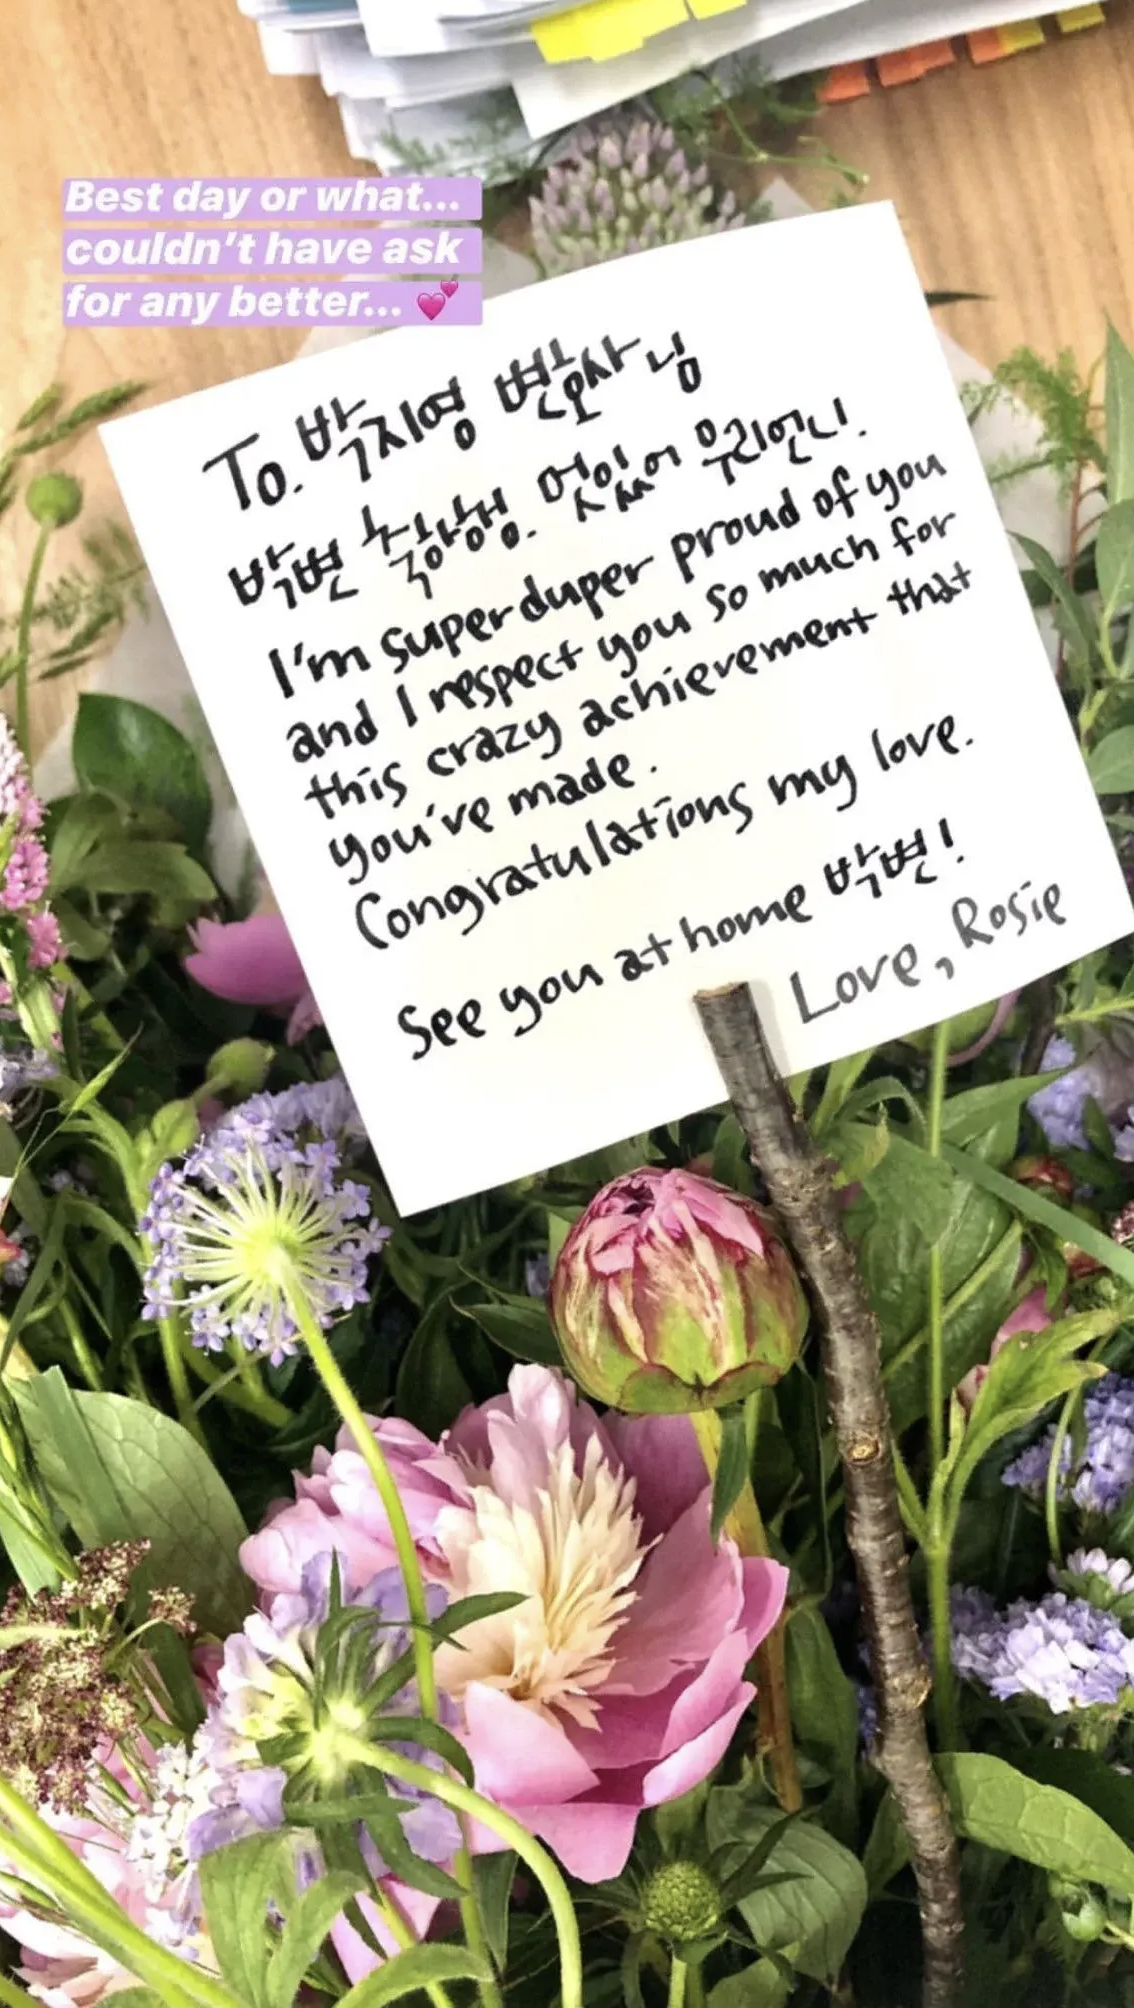 Best day or what...
couldn't have ask
for any better... 💕
To. 박지영 변호사님
박변 축하행. 멋있어 우리언니.
I'm super duper proud of you
and I respect you so much for
this crazy achievement that
you've made.
Congratulations my love.
See you at home 박변!
Love, Rosie